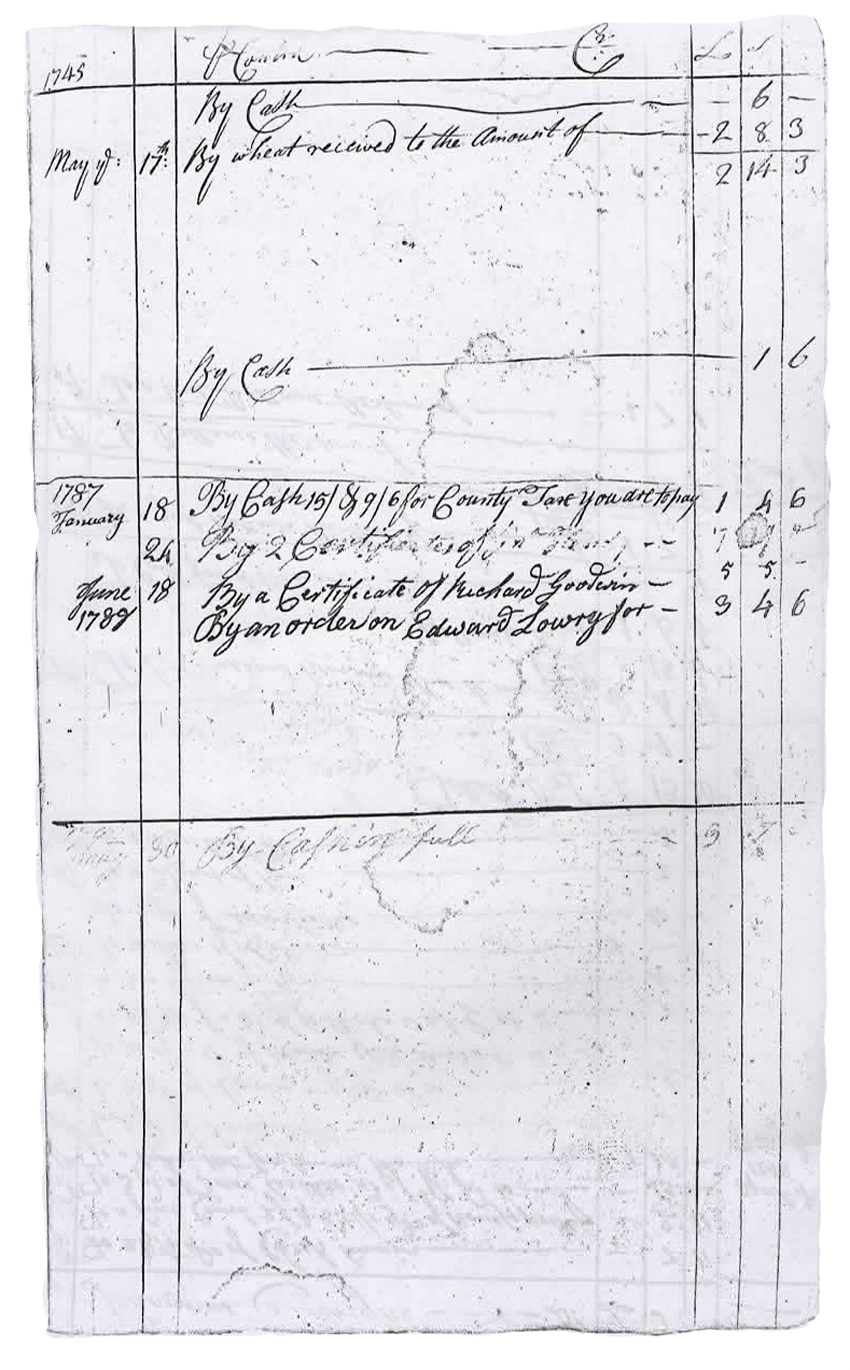 1745 Cr. £ s
By Cash - 6 -
May ye: 17th: By wheat received to the Amount of - 2 8 3
2 14 3
By Cash 1 6
1787
January 18 By Cash 15/ & 9/6 for County Tax you are to pay 1 4 6
24 By 2 Certificates of 7
June 18 By a Certificate of Richard Goodwin - 5 5 -
1788 By an order on Edward Lowry for - 3 4 6
30 By Cash in full